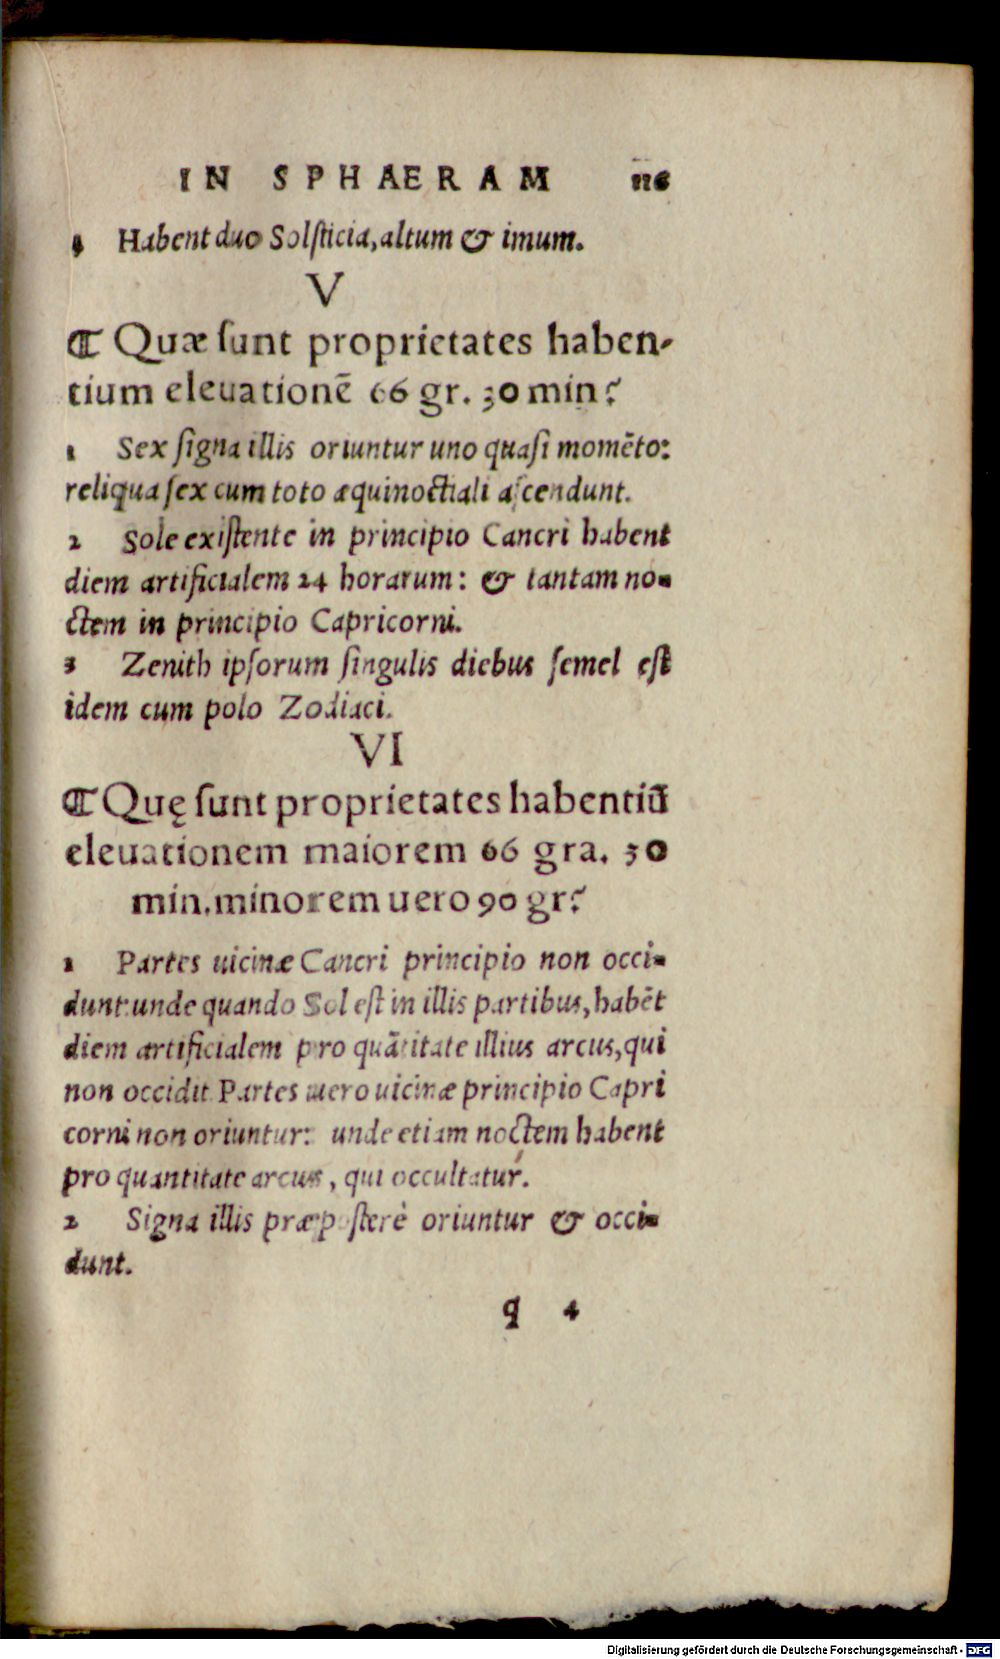 IN SPHAERAM 116
4 Habent duo Solſticia, altum & imum.
V
¶ Quæ ſunt proprietates haben-
tium eleuationē 66 gr. 30 min?
1 Sex ſigna illis oriuntur uno quaſi momēto:
reliqua ſex cum toto æquinoctiali aſcendunt.
2 Sole exiſtente in principio Cancri habent
diem artificialem 24 horarum: & tantam no-
ctem in principio Capricorni.
3 Zenith ipſorum ſingulis diebus ſemel eſt
idem cum polo Zodiaci.
VI
¶ Quę ſunt proprietates habentiū
eleuationem maiorem 66 gra. 30
min. minorem uero 90 gr?
1 Partes uicinæ Cancri principio non occi-
dunt: unde quando Sol eſt in illis partibus, habēt
diem artificialem pro quātitate illius arcus, qui
non occidit. Partes uero uicinæ principio Capri
corni non oriuntur: unde etiam noctem habent
pro quantitate arcus, qui occultatur.
2 Signa illis præpoſterè oriuntur & occi-
dunt.
q 4
Digitalisierung gefördert durch die Deutsche Forschungsgemeinschaft - DFG